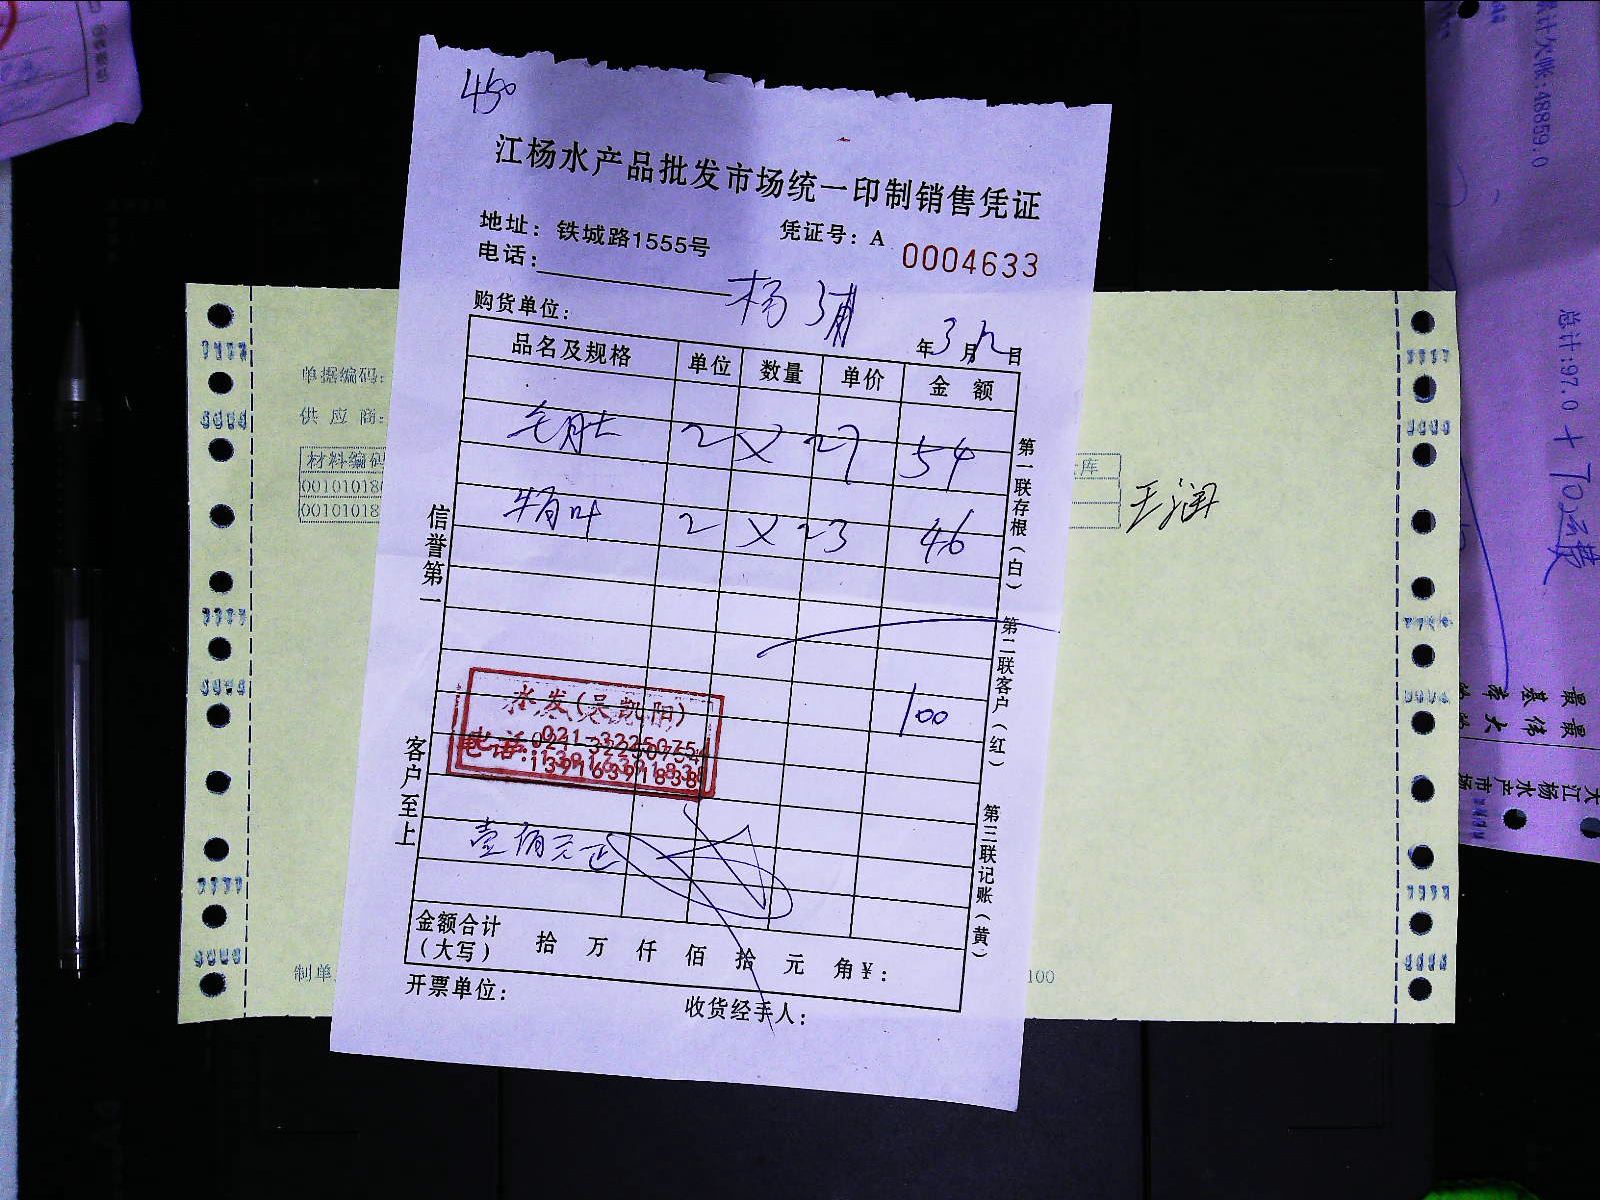 450
江杨水产品批发市场统一印制销售凭证
地址：铁城路1555号 凭证号：A 0004633
电话：
购货单位： 杨浦 年3月12日
品名及规格 单位 数量 单价 金额
毛肚 2 X 27 54
牛百叶 2 X 23 46
100
水发(吴凯阳)
电话:021-32250754
13916391838
壹佰元正
金额合计（大写） 拾 万 仟 佰 拾 元 角￥：
开票单位： 收货经手人：
信誉第一
客户至上
第一联存根(白)
第二联客户(红)
第三联记账(黄)
单据编码:
供应商:
材料编码
00101018
00101018
库
王润
制单
100
累计欠帐:48859.0
总计:97.0 +
大江杨水产市场